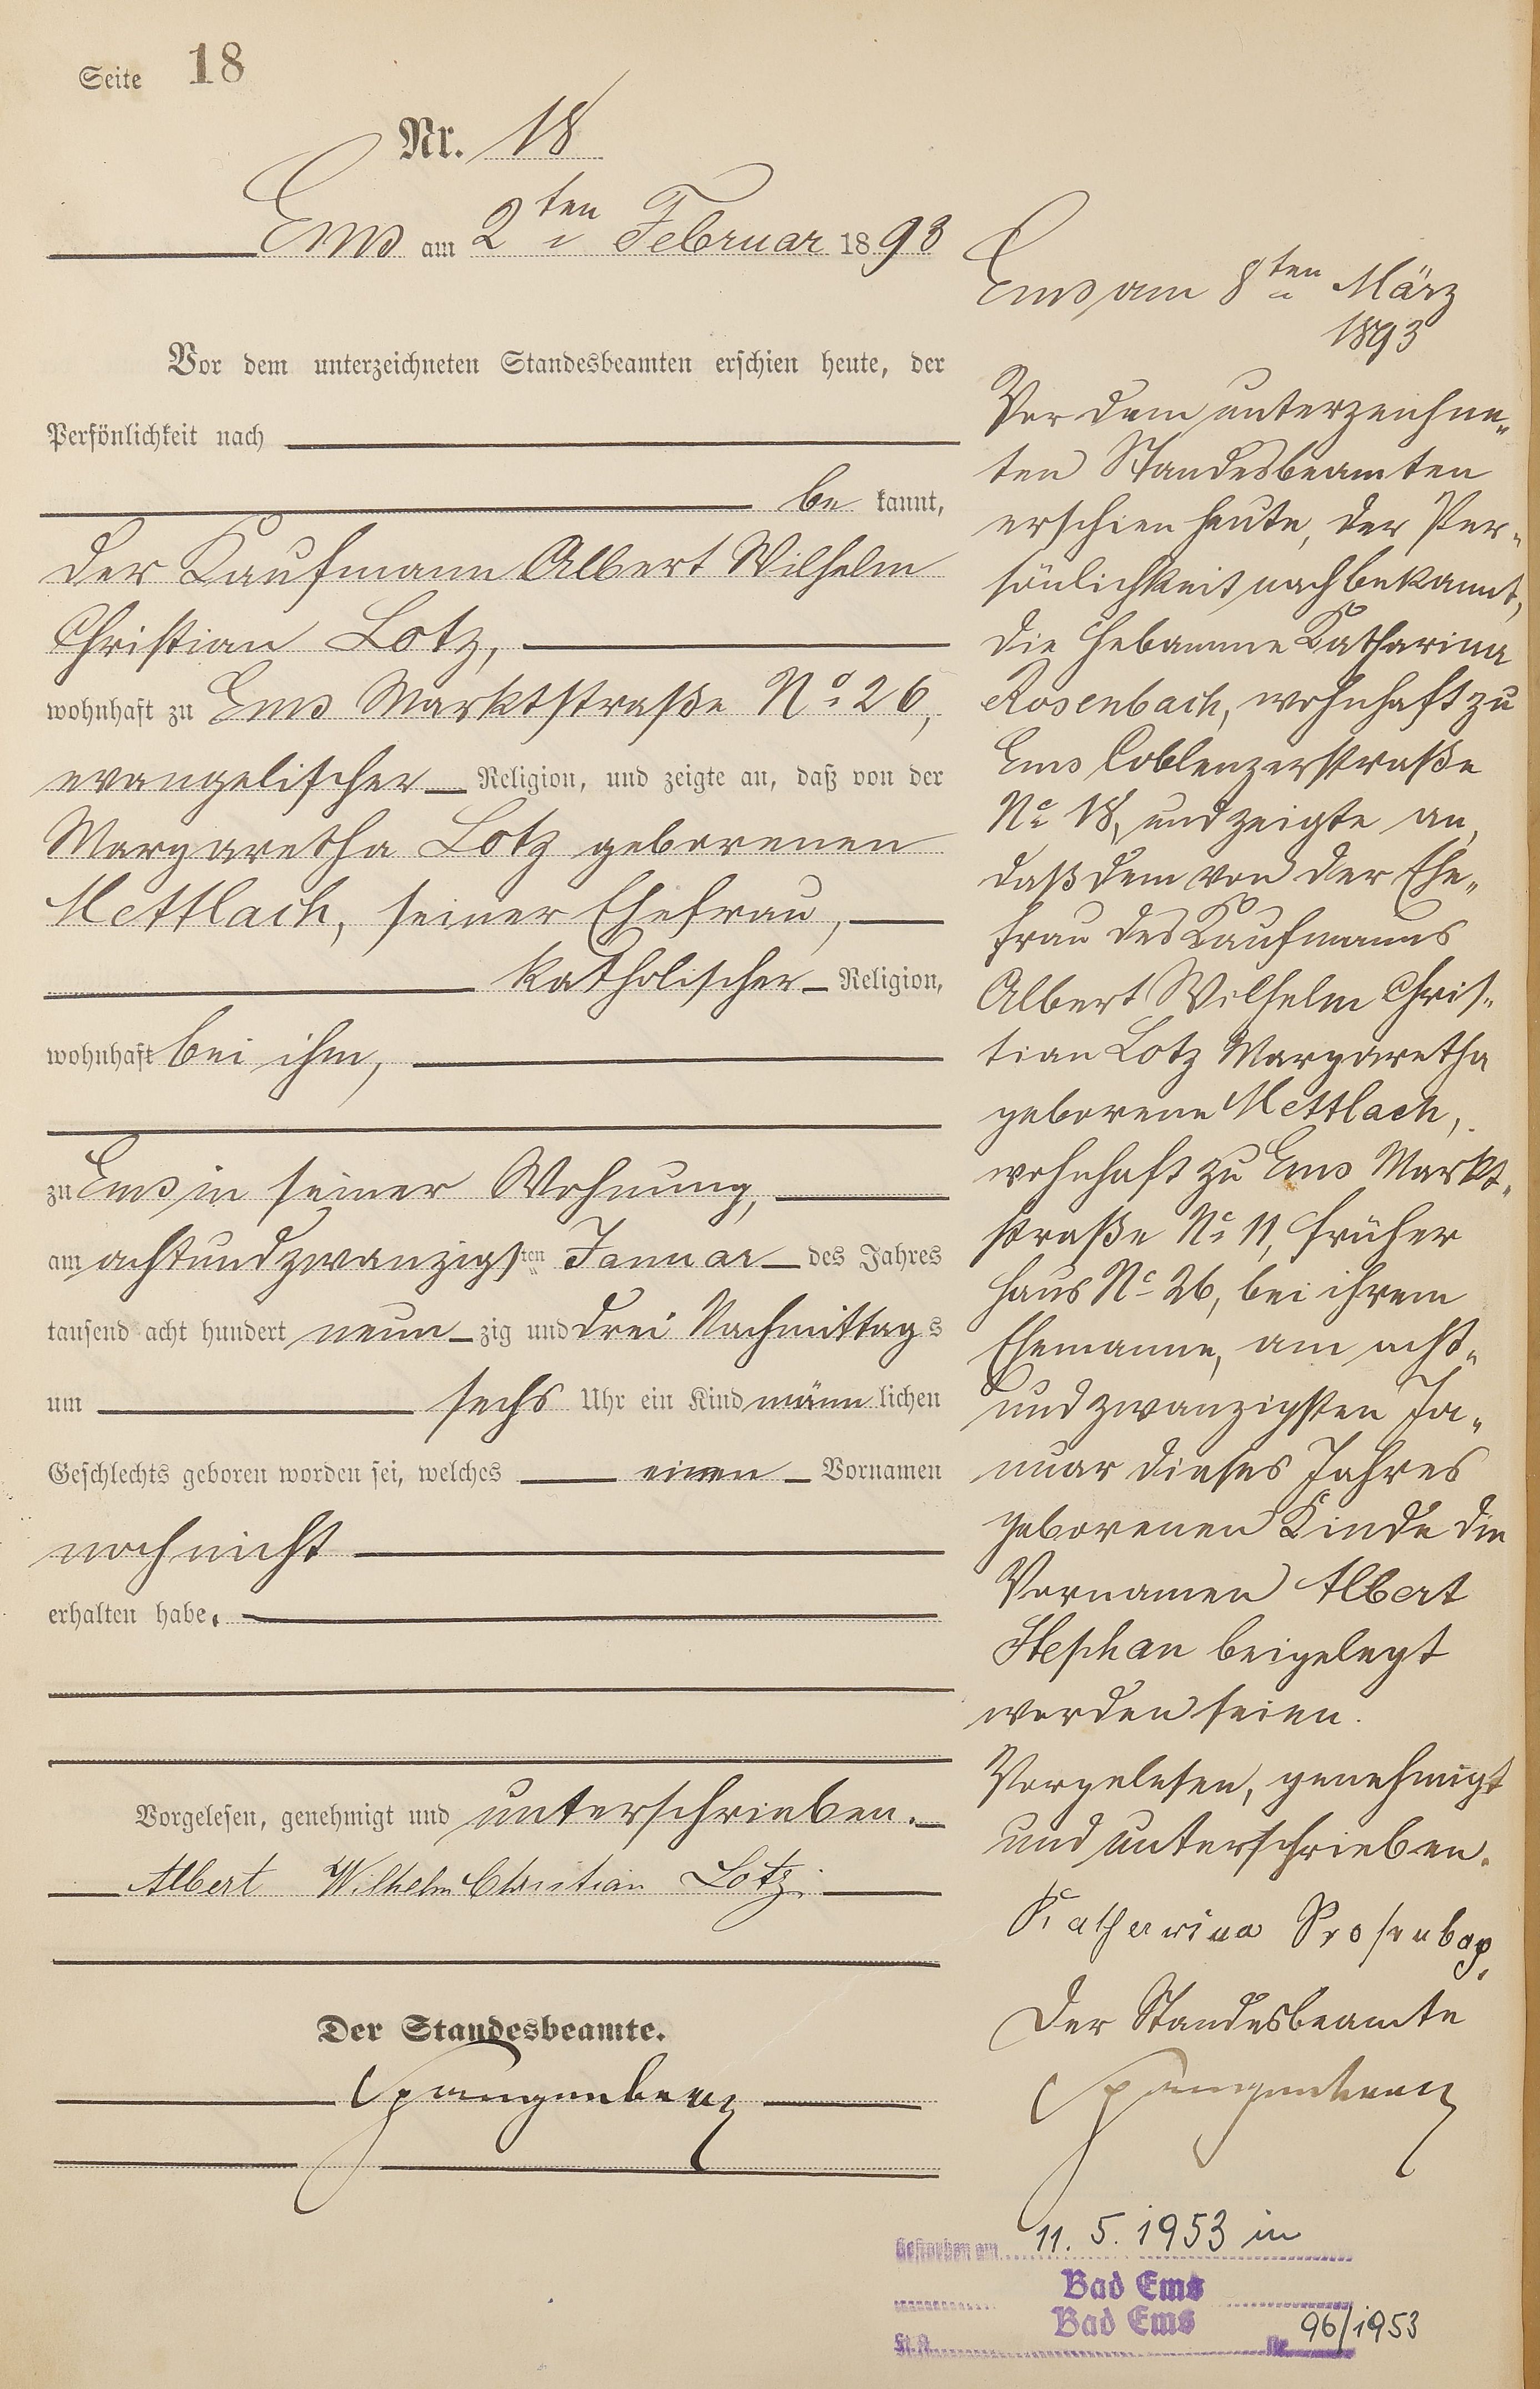 Seite 18
Nr. 18
Ems am 2ten Februar 1893
Vor dem unterzeichneten Standesbeamten erschien heute, der
Persönlichkeit nach
be kannt,
der Kaufmann Albert Wilhelm
Christian Lotz,
wohnhaft zu Ems Marktstraße No 26,
evangelischer Religion, und zeigte an, daß von der
Margaretha Lotz geborenen
Mettlach, seiner Ehefrau,
katholischer Religion,
wohnhaft bei ihm,
zu Ems in seiner Wohnung,
am achtundzwanzigsten Januar des Jahres
tausend acht hundert neun zig und drei Nachmittags
um sechs Uhr ein Kind männlichen
Geschlechts geboren worden sei, welches einen Vornamen
noch nicht
erhalten habe.
Vorgelesen, genehmigt und unterschrieben.
Albert Wilhelm Christian Lotz.
Der Standesbeamte.
Spangenberg
Ems am 8ten März
1893
Vor dem unterzeichne„
ten Standesbeamten
erschien heute, der Per„
sönlichkeit nach bekannt,
die Hebamme Katharina
Rosenbach, wohnhaft zu
Ems Coblenzerstraße
No 18, und zeigte an,
daß dem von der Ehe„
frau des Kaufmanns
Albert Wilhelm Chris„
tian Lotz Margaretha
geborene Mettlach,
wohnhaft zu Ems Markt„
straße No 11, früher
Haus No 26, bei ihrem
Ehemanne, am acht„
undzwanzigsten Ja„
nuar dieses Jahres
geborenen Kinde die
Vornamen Albert
Stephan beigelegt
worden seien.
Vorgelesen, genehmigt
und unterschrieben.
Katharina Rosenbach.
Der Standesbeamte
Spangenberg
Gestorben am 11. 5. 1953 in
Bad Ems
Bad Ems
St.A. Nr. 96/1953